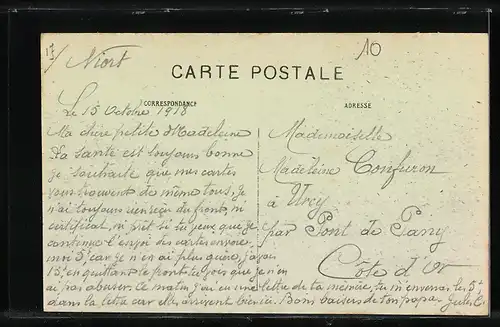 13/ Niort
10
CARTE POSTALE
CORRESPONDANCE
ADRESSE
Le 15 Octobre 1918
Ma chère petite Madeleine
La santé est toujours bonne
je souhaite que mes cartes
vous trouvent de même tous, je
n'ai toujours rien reçu du front, ni
certificat, ni prêt si tu veux que je
continue l'envoi des cartes envoie
moi 5f car je n'en ai plus guère, j'avais
15f en quittant le front tu vois que je n'en
ai pas abuser. Ce matin j'ai eu une lettre de ta mémère, tu m'enverras les 5f
dans la lettre car elles arrivent bien ici. Bons baisers de ton papa
Mademoiselle
Madeleine Confuron
à Urcy
par Pont de Pany
Côte d'Or